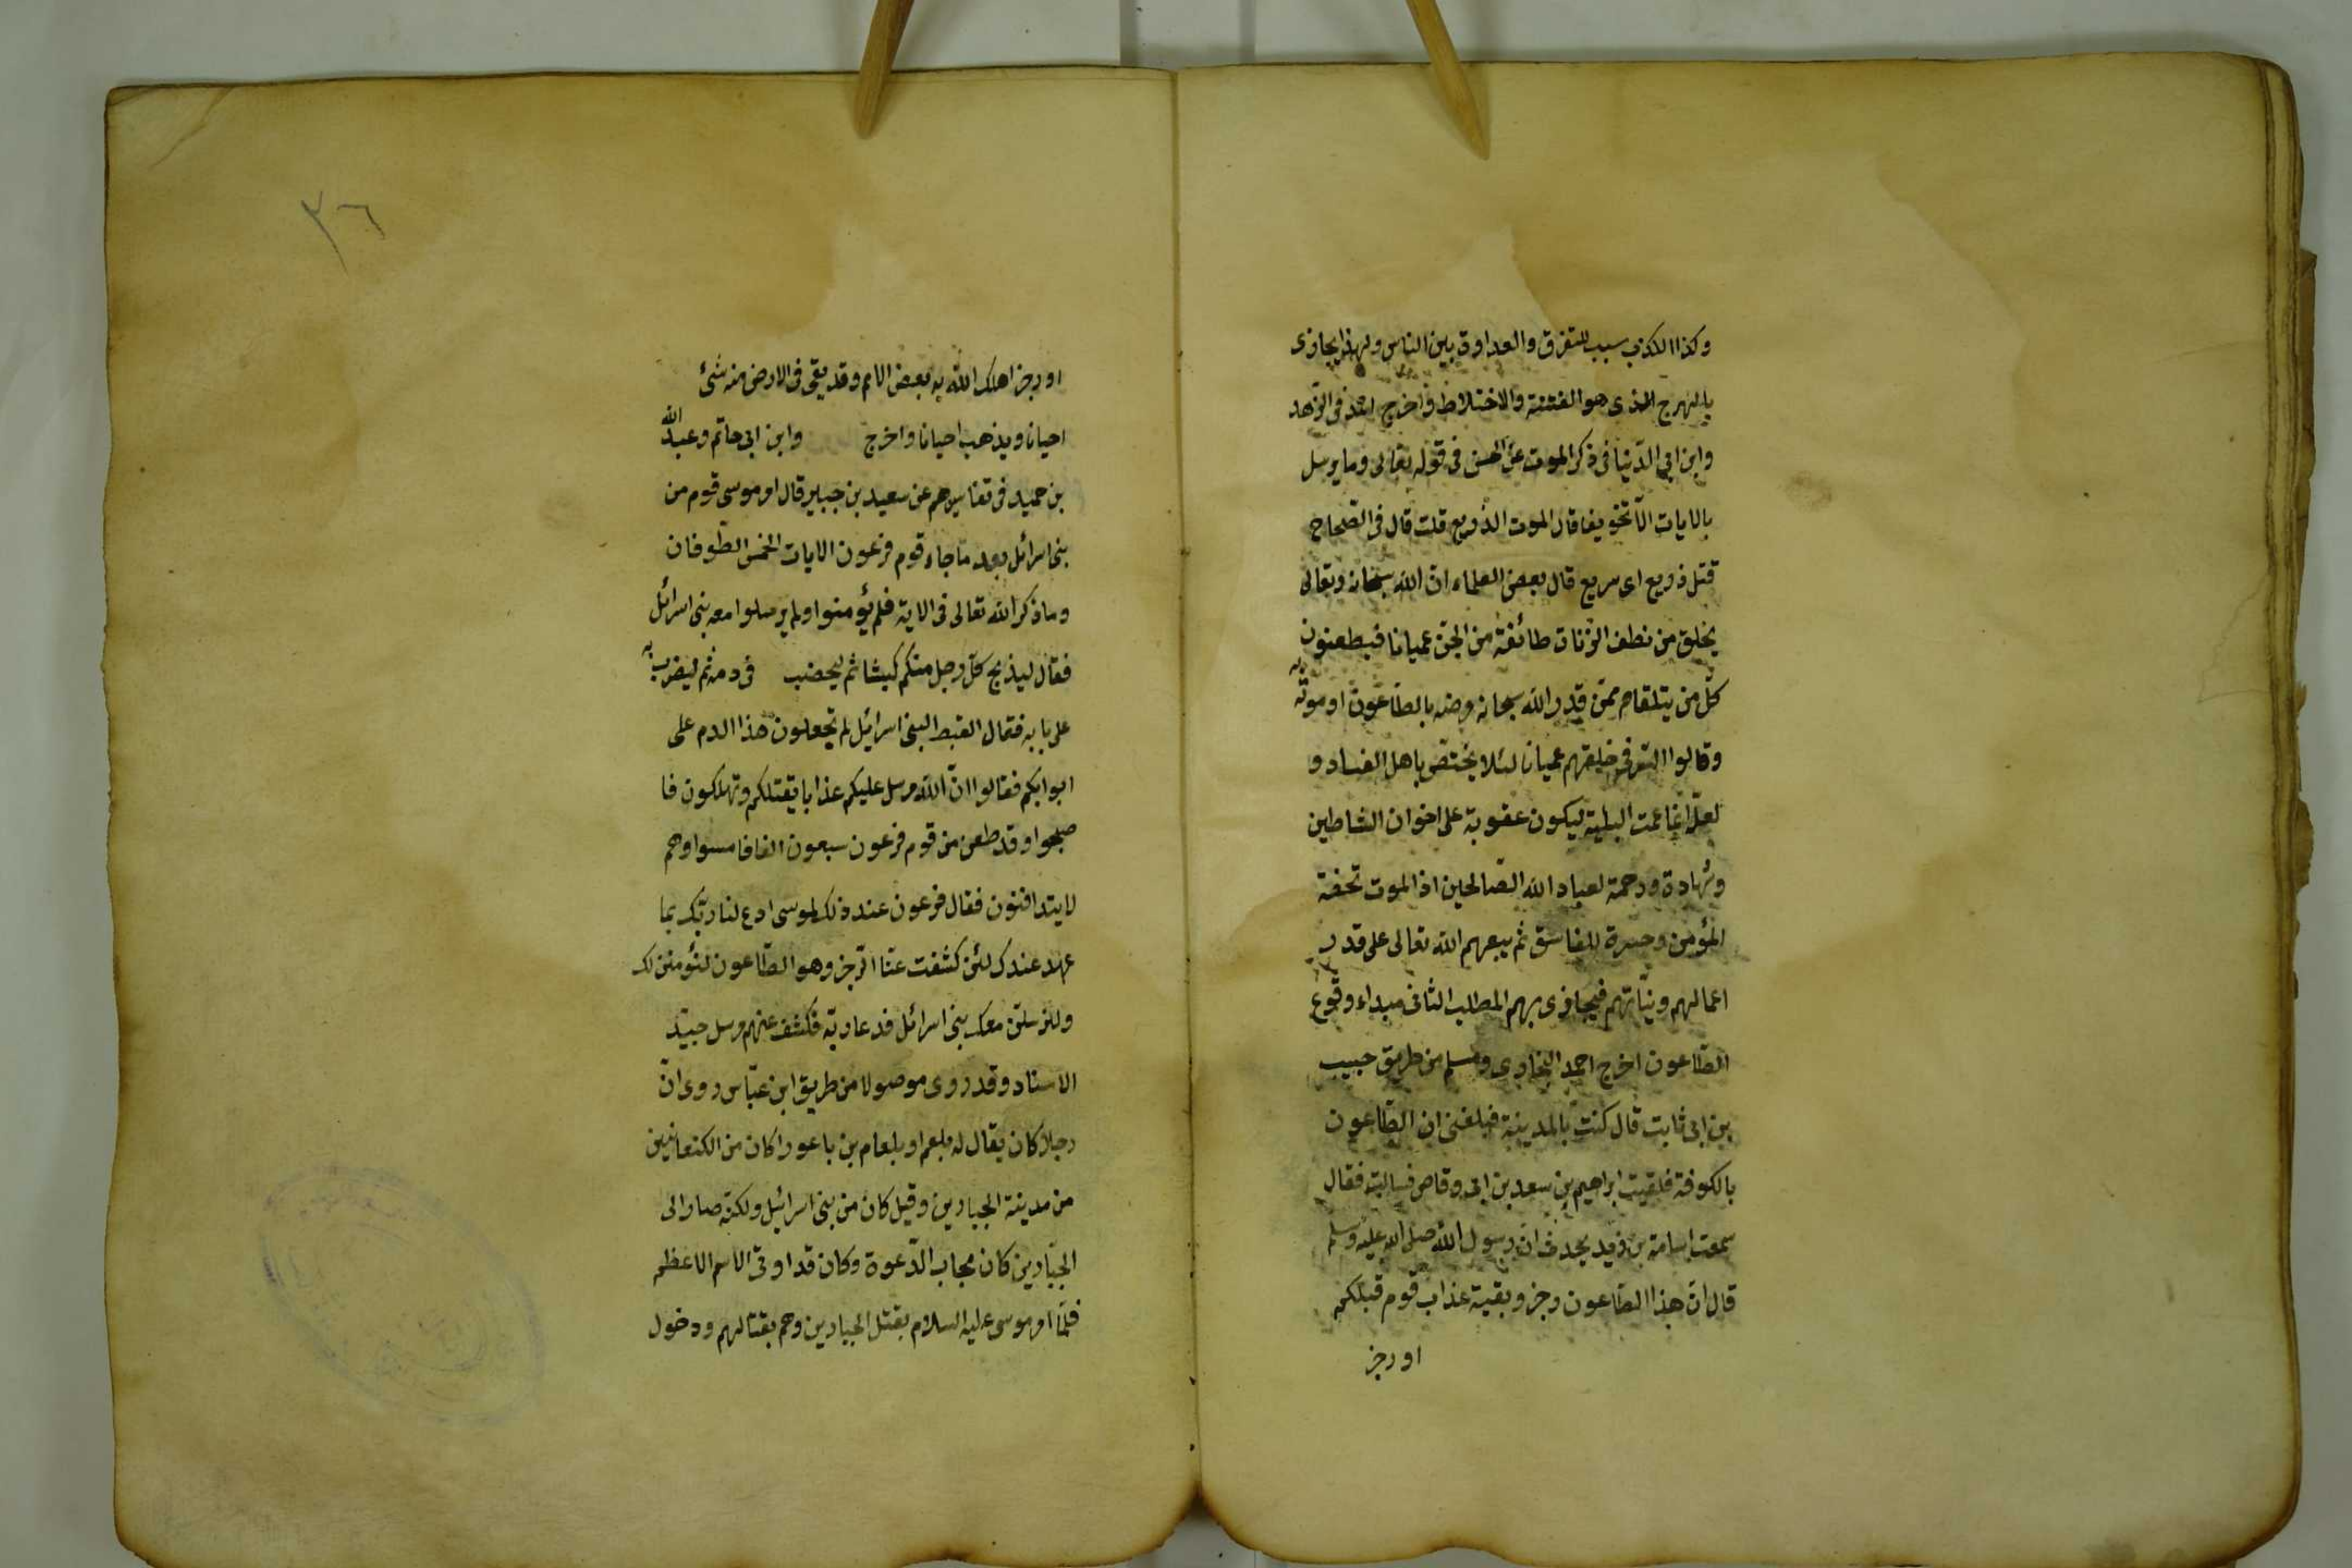 وكذا الكذب سبب للتفرق والعداوة بين الناس ولهذا يجازى
بالهرج الذى هو الفتنة والاختلاط واخرج احمد فى الزهد
وابن ابى الدنيا فى ذكر الموت عن الحسن فى قوله تعالى وما نرسل
بالايات الا تخويفا قال الموت الذريع قلت قال فى الصحاح
قتل ذريع اى سريع قال بعض العلماء ان الله سبحانه وتعالى
يخلق من نطف الزناة طائفة من الجن عميانا فيطعنون
كل من يتلقاهم ممن قدر الله سبحانه مرضه بالطاعون او موته به
وقالوا السر فى خلقهم عميانا لئلا يختص باهل الفساد و
لعل انما عمت البلية ليكون عقوبة على اخوان الشاطين
وشهادة ورحمة لعباد الله الصالحين اذ الموت تحفة
المؤمن وحسرة للفاسق ثم يبعهم الله تعالى على قدر
اعمالهم ونياتهم فيجازى بهم المطلب الثانى مبداء وقوع
الطاعون اخرج احمد البخارى ومسلم من طريق حبيب
بن ابى ثابت قال كنت بالمدينة فبلغنى ان الطاعون
بالكوفة فلقيت ابراهيم بن سعد بن ابى وقاص فسالته فقال
سمعت اسامة بن زيد يحدث ان رسول الله صلى الله عليه وسلم
قال ان هذا الطاعون رجز وبقية عذاب قوم قبلكم
او رجز
٣٦
او رجز اهلك الله به بعض الامم وقد بقى فى الارض منه شئ
احيانا ويذهب احيانا واخرج وابن ابى حاتم وعبد الله
بن حميد فى تفاسيرهم عن سعيد بن جبير قال امر موسى قوم من
بنى اسرائل بعد ما جاء قوم فرعون الايات الخمس الطوفان
وما ذكر الله تعالى فى الاية فلم يؤمنوا ولم يرسلوا معه بنى اسرائل
فقال ليذبح كل رجل منكم كبشا ثم ليخضب فى دمه ثم ليضرب به
على بابه فقال القبط لبنى اسرائيل لم تجعلون هذا الدم على
ابوابكم فقالوا ان الله مرسل عليكم عذابا يقتلكم وتهلكون فا
صبحوا وقد طعن من قوم فرعون سبعون الفا فامسوا وهم
لا يتدافنون فقال فرعون عند ذلك لموسى ادع لنا ربك بما
عهد عندك لئن كشفت عنا الرجز وهو الطاعون لنؤمنن لك
ولنرسلن معك بنى اسرائل فدعا ربه فكشف عنهم مرسل جيد
الاسناد وقد روى موصولا من طريق ابن عباس روى ان
رجلا كان يقال له بلعم او بلعام بن باعورا كان من الكنعانيين
من مدينة الجبارين وقيل كان من بنى اسرائيل ولكنه صار الى
الجبارين كان مجاب الدعوة وكان قد اوتى الاسم الاعظم
فلما امر موسى عليه السلام بقتل الجبارين وهم بقتالهم ودخول